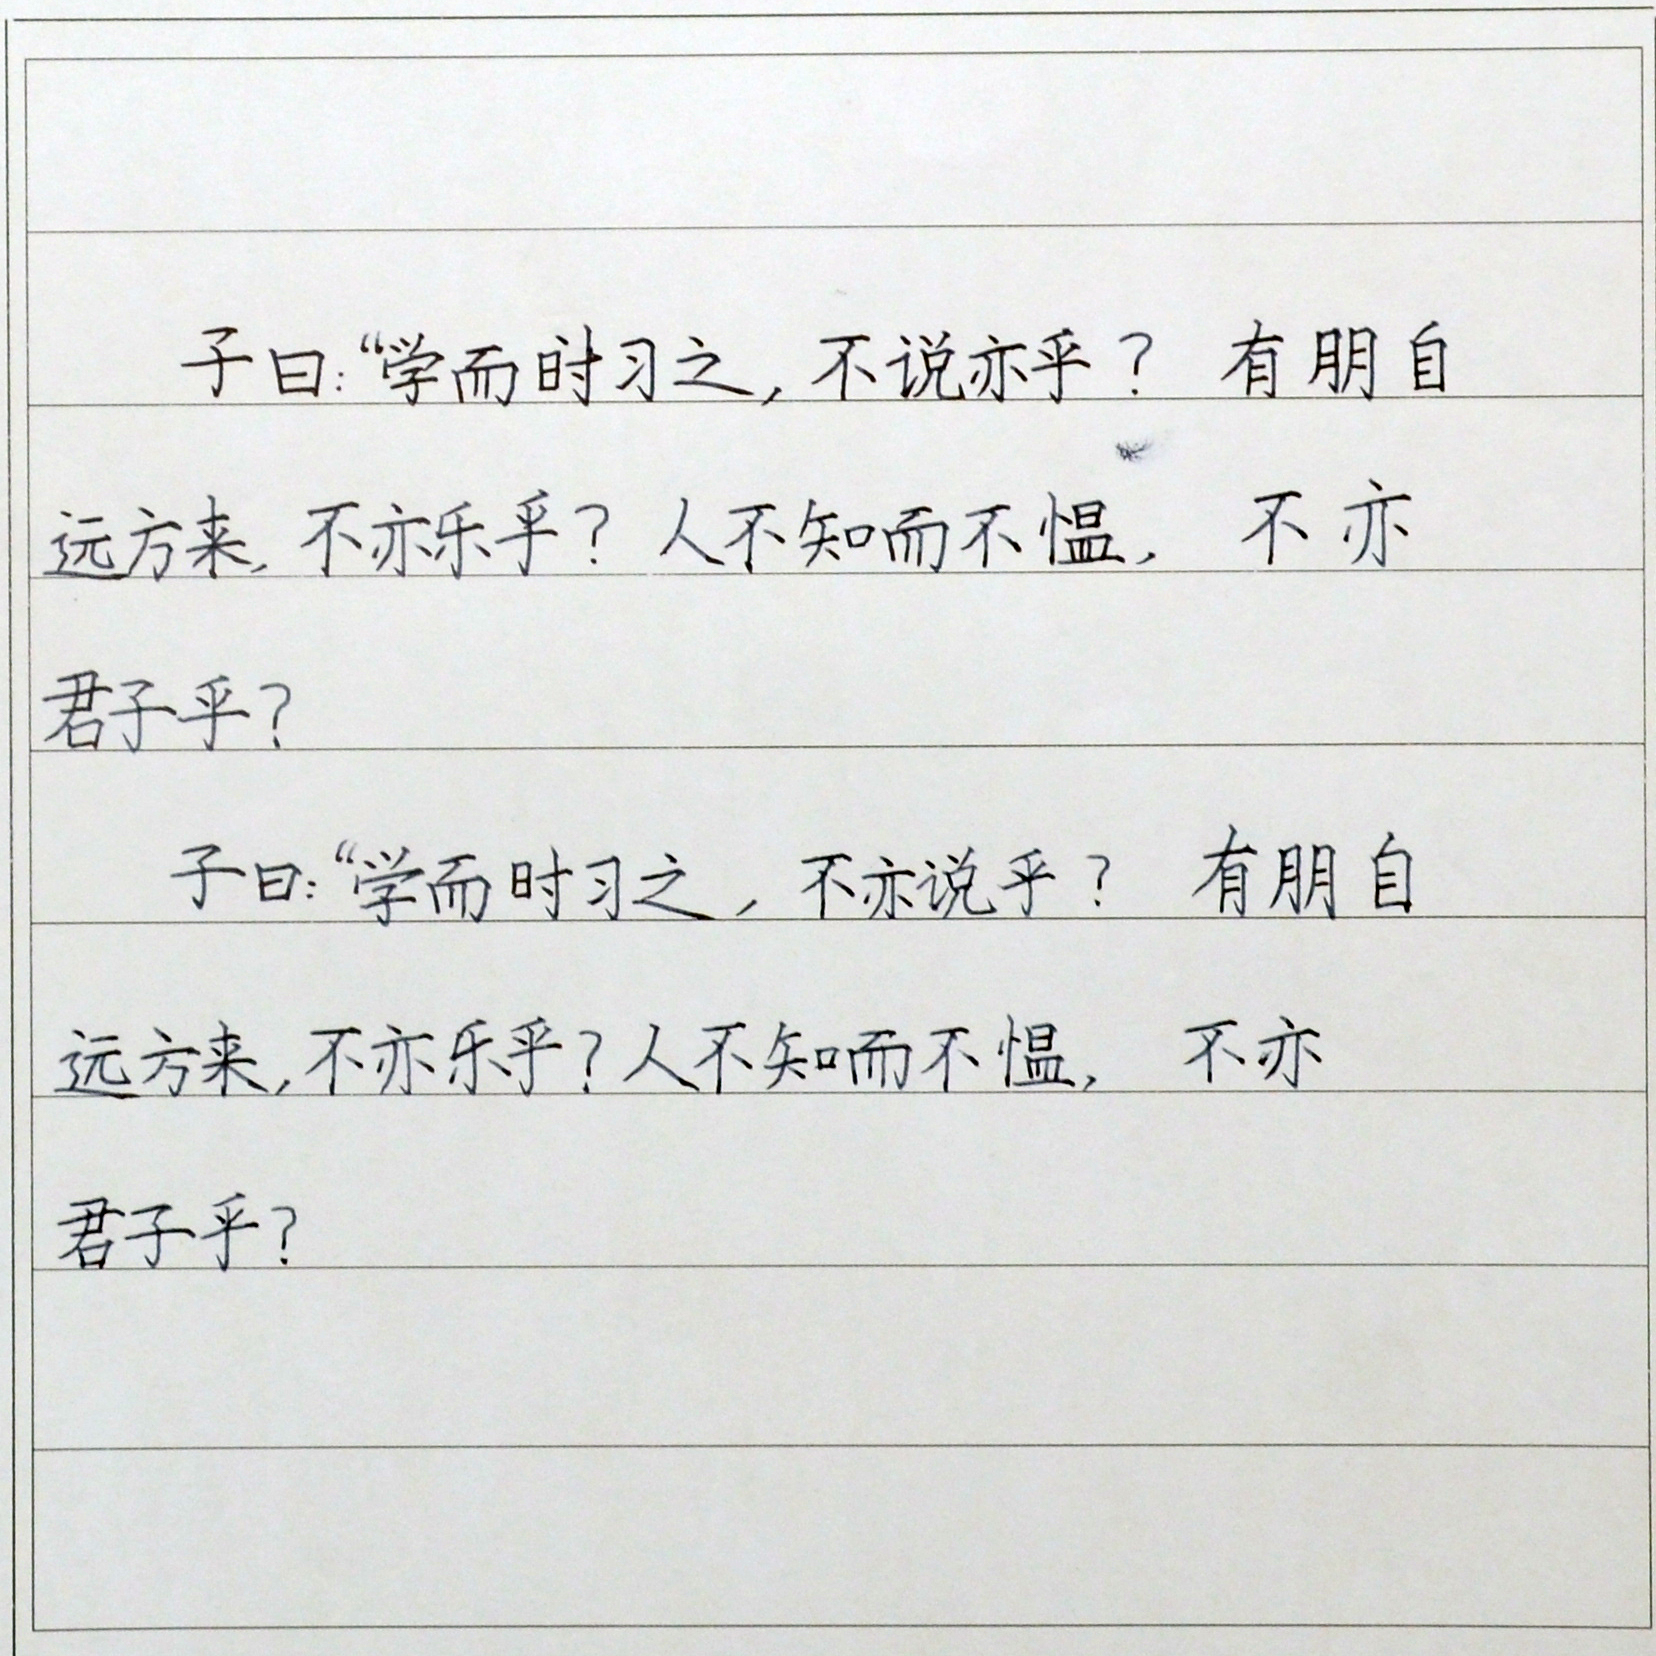 子曰：“学而时习之，不说亦乎？ 有朋自
远方来，不亦乐乎？ 人不知而不愠， 不亦
君子乎？
子曰：“学而时习之，不亦说乎？ 有朋自
远方来，不亦乐乎？人不知而不愠， 不亦
君子乎？